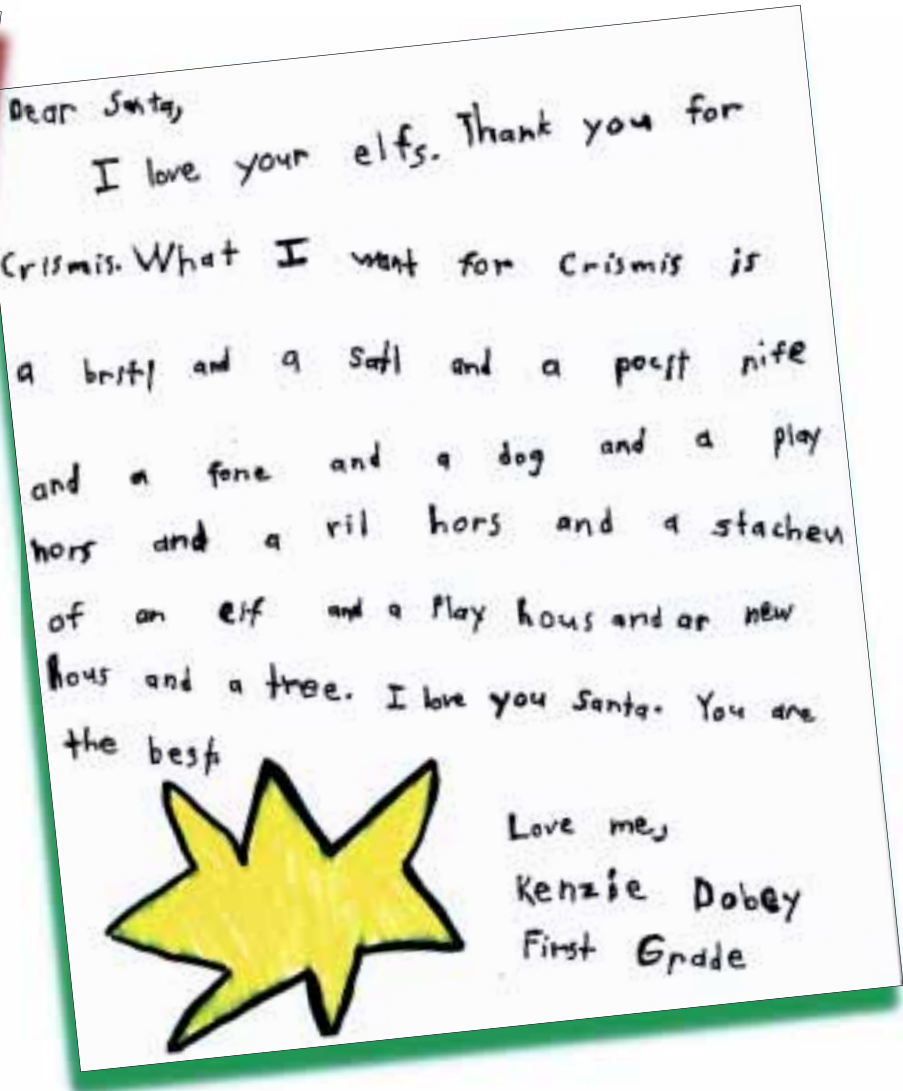 Dear Santa,
I love your elfs. Thank you for
Crismis. What I want for Crismis is
a britl and a satl and a pocit nife
and a fone and a dog and a play
hors and a ril hors and a stacheu
of an elf and a Play hous and ar new
hous and a tree. I love you Santa. You are
the best
Love me,
Kenzie Dobey
First Grade